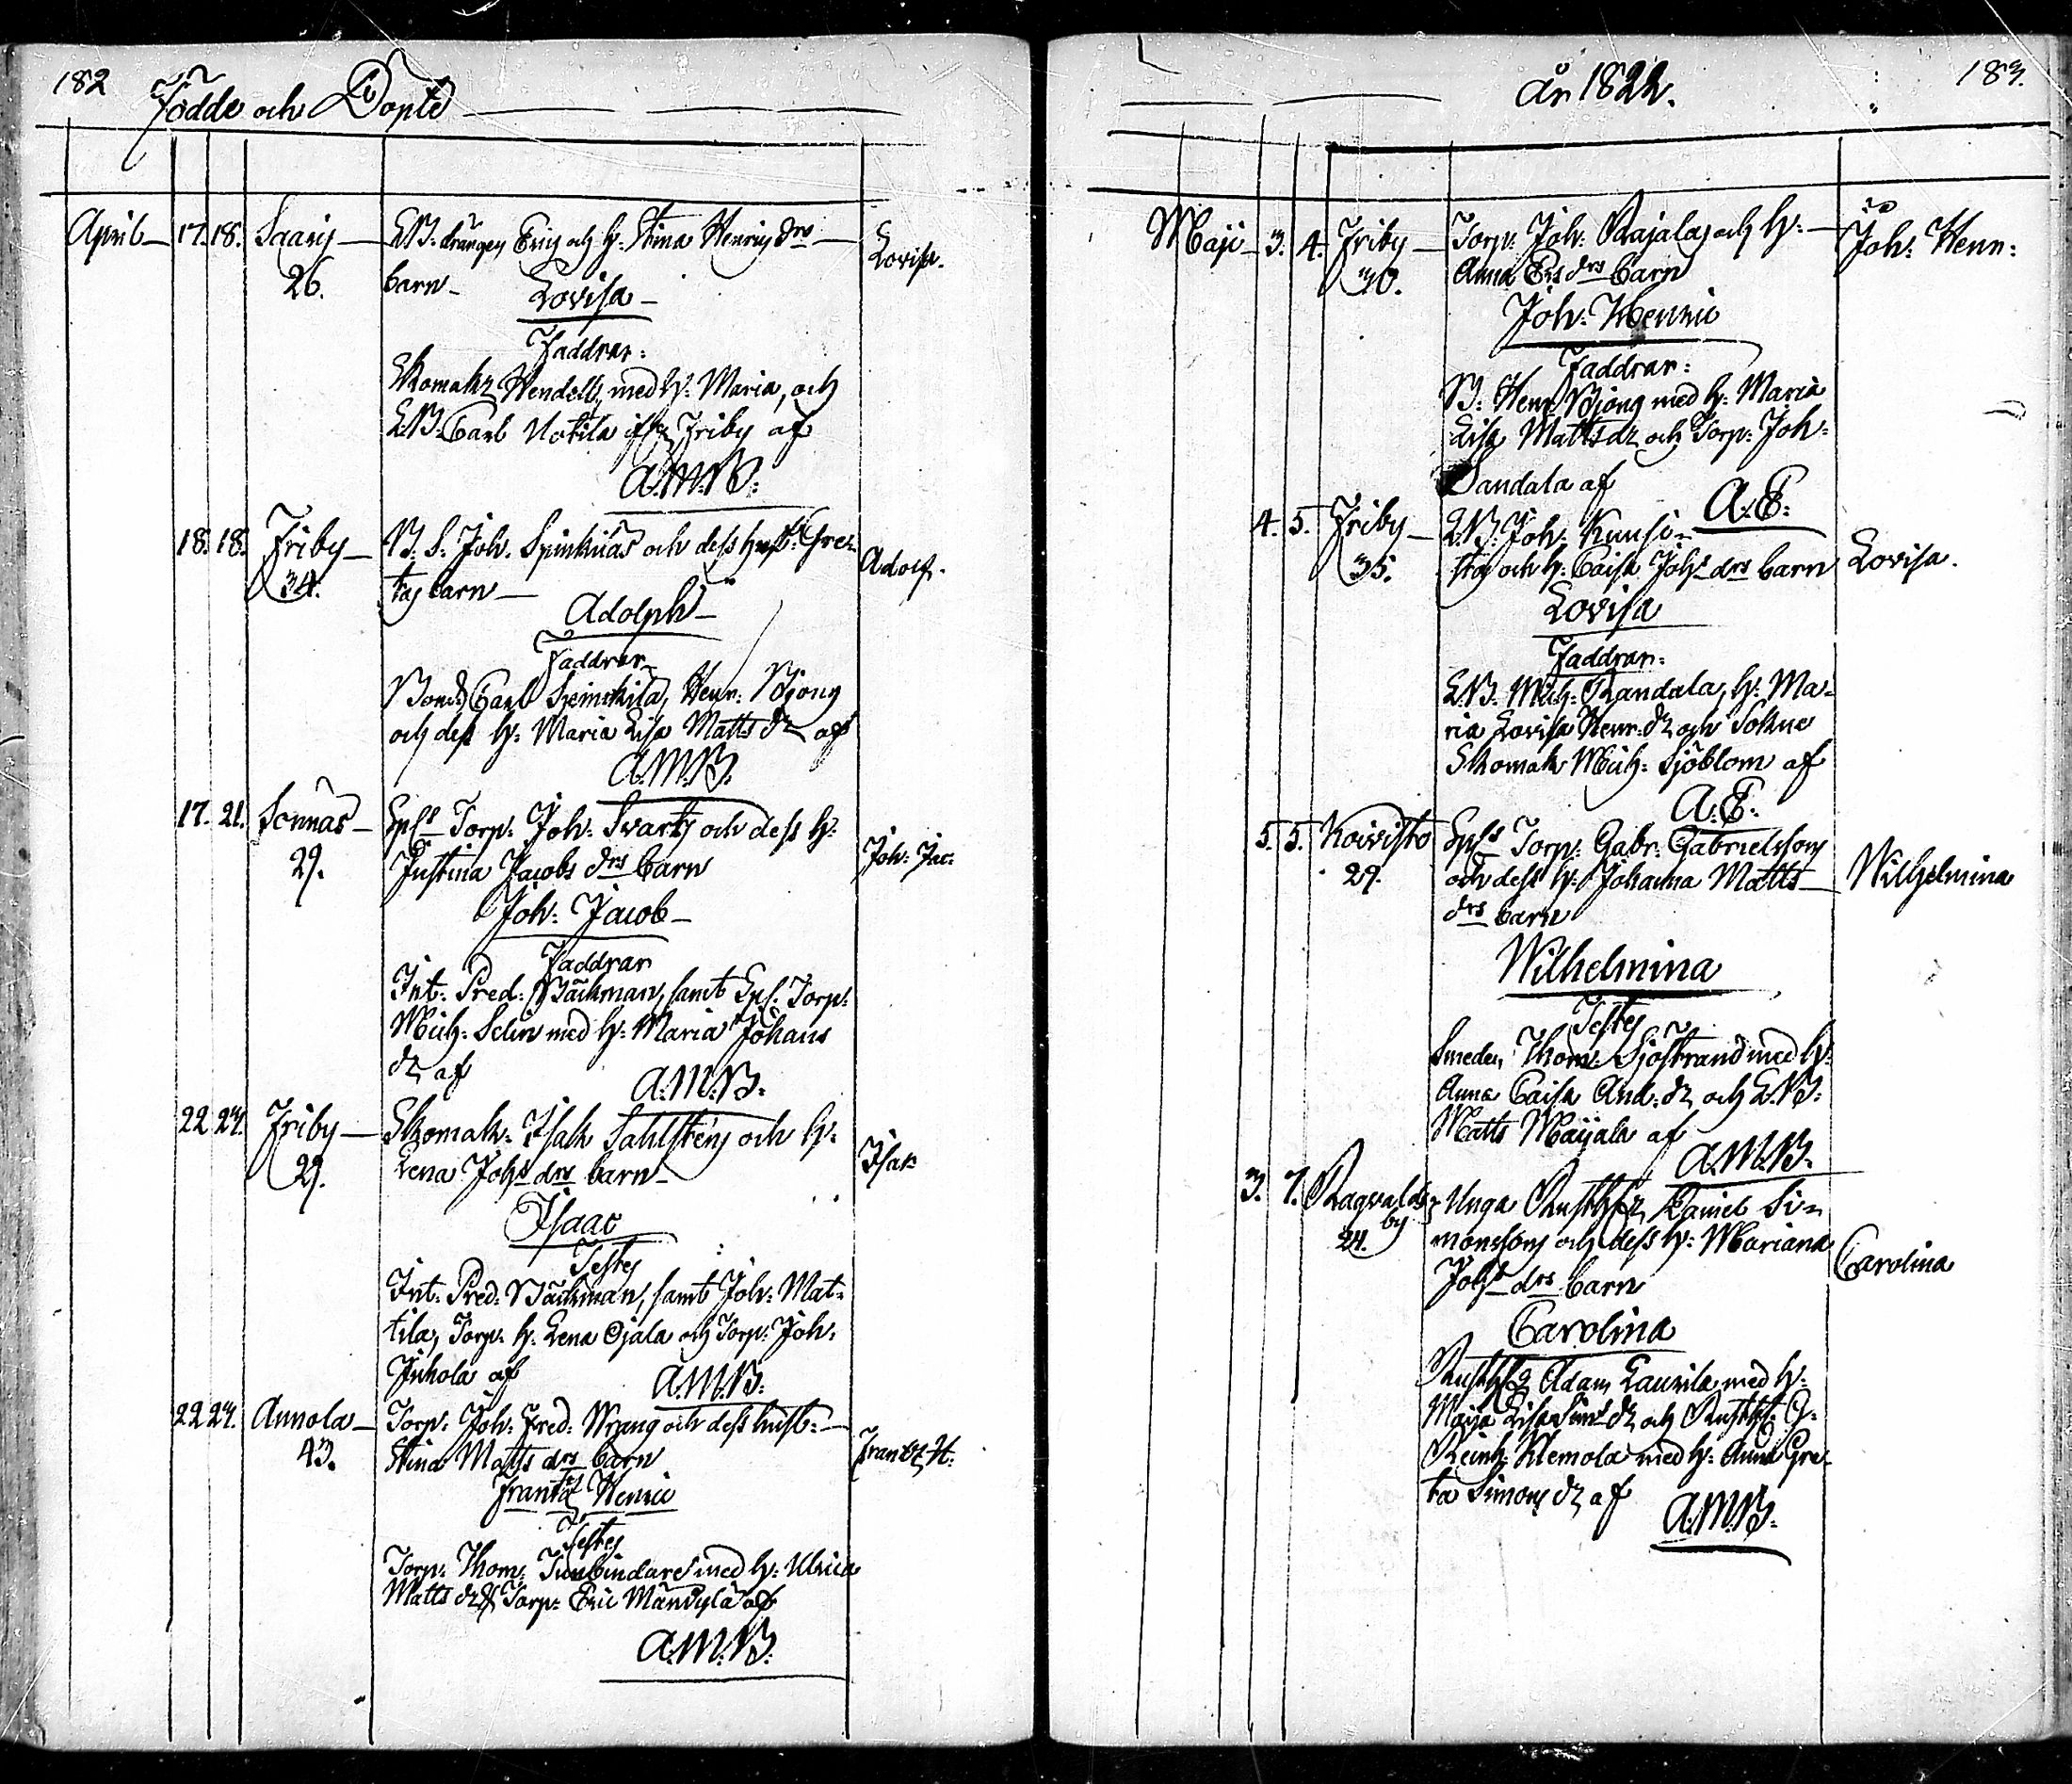 182 Födde och Döpte
April 17. 18. Saaris EB. drängen Erics och h. Stina Henrics drs Lovisa.
26. barn
Lovisa
Faddrar:
Skomakr Wendell, med h: Maria, och
E.B. Carl Uotila ifrn Friby af
A.M.B.
18. 18. Friby B. S. Joh. Spinknäs och dess hust: Gre- Adolf.
34. tas barn
Adolph
Faddrar
Bond: Carl Spinkilä, Henr: Björg
och dess h: Maria Lisa Matts dr af
A.M.B.
17. 21. Sonnäs Spls Torp: Joh: Svarts och dess h: Joh: Jac:
29. Justina Jacobs drs barn
Joh: Jacob
Faddrar
Int: Pred: Bäckman, samt Spl: Torp:
Mich: Selin med h: Maria Johans
dr af
A.M.B.
22 24. Friby Skomak: Isak Sahlstens och h: Isak
29. Lena Johs drs barn
Isaac
Testes
Int: Pred: Bäckman, samt Joh: Mat-
tila, Torp: h: Lena Ojala och Torp: Joh:
Juhola af
A.M.B.
22 24. Annola Torp: Joh: Fred: Wrang och dess hust: Frantz H:
43. Stina Matts drs barn
Frantz Henric
Testes
Torp: Thom: Tunbindare med h: Ulrica
Matts dr & Torp: Eric Mändylä af
A.M.B.
År 1822. 183.
Maji 3. 4. Friby Torp: Joh: Rajalas och h: Joh: Henr:
30. Anna Ers drs barn
Joh: Henric
Faddrar:
B: Henr Björg med h: Maria
Lisa Matts dr och Torp: Joh:
Randala af
A.E.
4. 5. Friby E.B. Joh: Kuusi- Lovisa.
35. stos och h: Caisa Johs drs barn
Lovisa
Faddrar:
E.B. Mich: Randala, h: Ma-
ria Lovisa Henr: dr och Sokne
Skomak Mich: Sjöblom af
A.E.
5. 5. Koivisto Spls Torp: Gabr: Gabrielssons Wilhelmina
29. och dess h: Johanna Matts
drs barn
Wilhelmina
Testes
Smeden Thom: Sjöstrand med h:
Anna Caisa And: dr och E.B:
Matts Maijala af
A.M.B.
3. 7. Ragvalds- Unga Rusthr Daniel Si- Carolina
by 24. monssons och dess h: Mariana
Johs drs barn
Carolina
Rusthr Adam Laurila med h:
Maja Lisa Sims dr och Rusth: G:
Reinh: Klemola med h: Anna Gre-
ta Simons dr af
A.M.B.